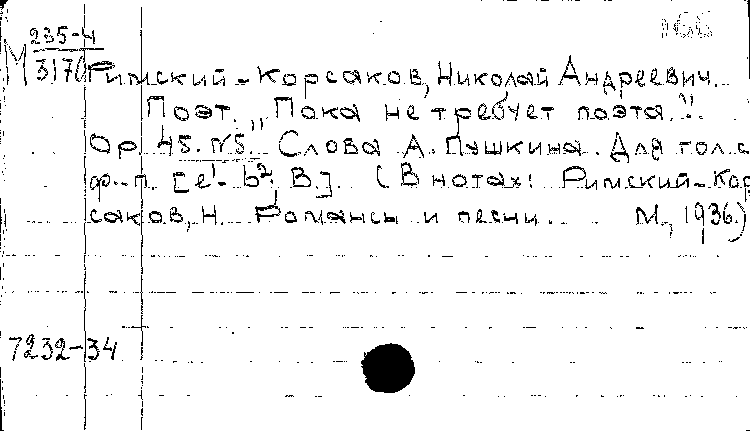 166
235-4
М 3176 Римский-Корсаков, Николай Андреевич.
Поэт. „Пока не требует поэта..."
Op. 45. №5. Слова А. Пушкина. Для гол. с
ф.-п. [e¹- b²; B.]. (В нотах: Римский-Кор
саков, Н. Романсы и песни. М., 1936.)
7232-34